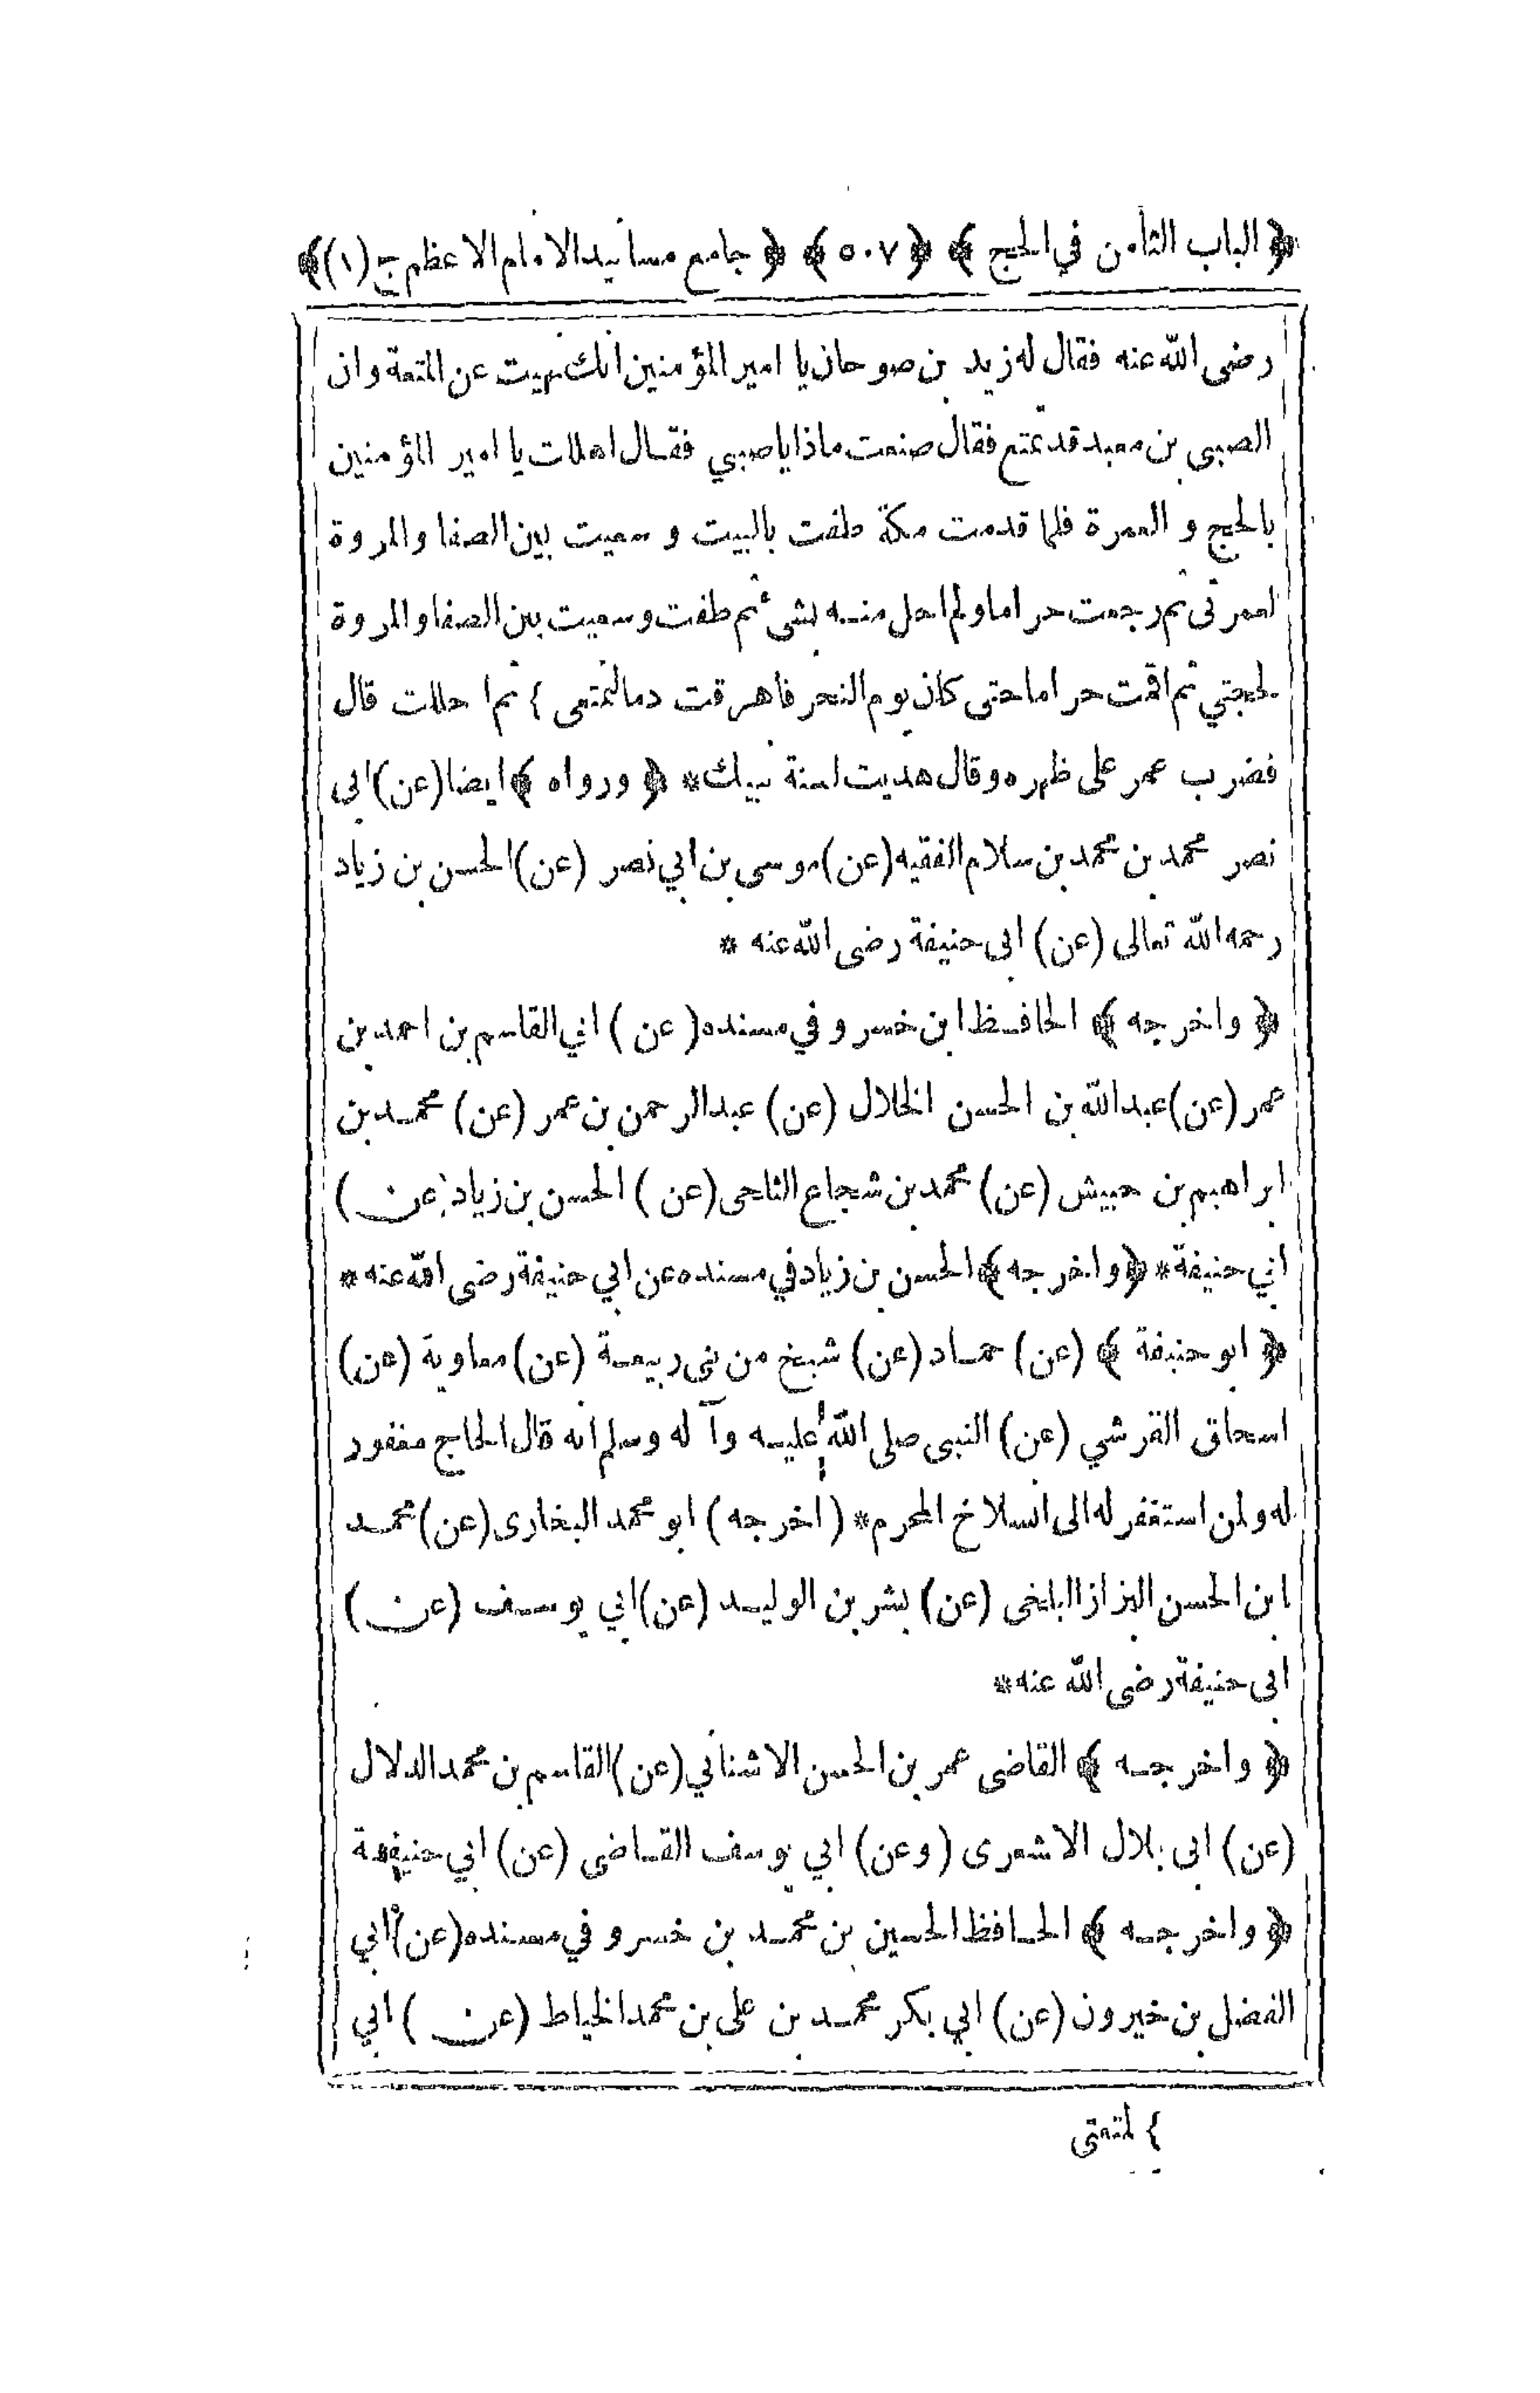 ﴿ الباب الثامن في الحج ﴾ ﴿ ٥٠٧ ﴾ ﴿ جامع مسانيد الامام الاعظم ج (١) ﴾
رضى الله عنه فقال له زيد بن صوحان يا امير المؤمنين انك نهيت عن المتعة وان
الصبى بن معبد قد تمتع فقال صنعت ماذا يا صبي فقال اهللت يا امير المؤمنين
بالحج و العمرة فلما قدمت مكة طفت بالبيت و سعيت بين الصفا والمروة
لعمرتى ثم رجعت حراما ولم احل منه بشىء ثم طفت وسعيت بين الصفا والمروة
لحجتي ثم اقمت حراما حتى كان يوم النحر فاهرقت دما لتمتعى } ثم احللت قال
فضرب عمر على ظهره وقال هديت لسنة نبيك * ﴿ ورواه ﴾ ايضا (عن) ابى
نصر محمد بن محمد بن سلام الفقيه (عن) موسى بن ابي نصر (عن) الحسن بن زياد
رحمه الله تعالى (عن) ابى حنيفة رضى الله عنه *
﴿ واخرجه ﴾ الحافظ ابن خسرو في مسنده (عن) ابي القاسم بن احمد بن
عمر (عن) عبدالله بن الحسن الخلال (عن) عبدالرحمن بن عمر (عن) محمد بن
ابراهيم بن حبيش (عن) محمد بن شجاع الثلجى (عن) الحسن بن زياد (عن)
ابي حنيفة * ﴿ واخرجه ﴾ الحسن بن زياد في مسنده عن ابي حنيفة رضى الله عنه *
﴿ ابو حنيفة ﴾ (عن) حماد (عن) شيخ من بنى ربيعة (عن) معاوية (عن)
اسحاق القرشي (عن) النبى صلى الله عليه وآله وسلم انه قال الحاج مغفور
له ولمن استغفر له الى انسلاخ المحرم * (اخرجه) ابو محمد البخارى (عن) محمد
ابن الحسن البزاز البلخى (عن) بشر بن الوليد (عن) ابي يوسف (عن)
ابى حنيفة رضى الله عنه *
﴿ واخرجه ﴾ القاضى عمر بن الحسن الاشناني (عن) القاسم بن محمد الدلال
(عن) ابى بلال الاشعرى (وعن) ابي يوسف القاضى (عن) ابي حنيفة
﴿ واخرجه ﴾ الحافظ الحسين بن محمد بن خسرو في مسنده (عن) ابي
الفضل بن خيرون (عن) ابي بكر محمد بن على بن محمد الخياط (عن) ابي
} لمتعتى